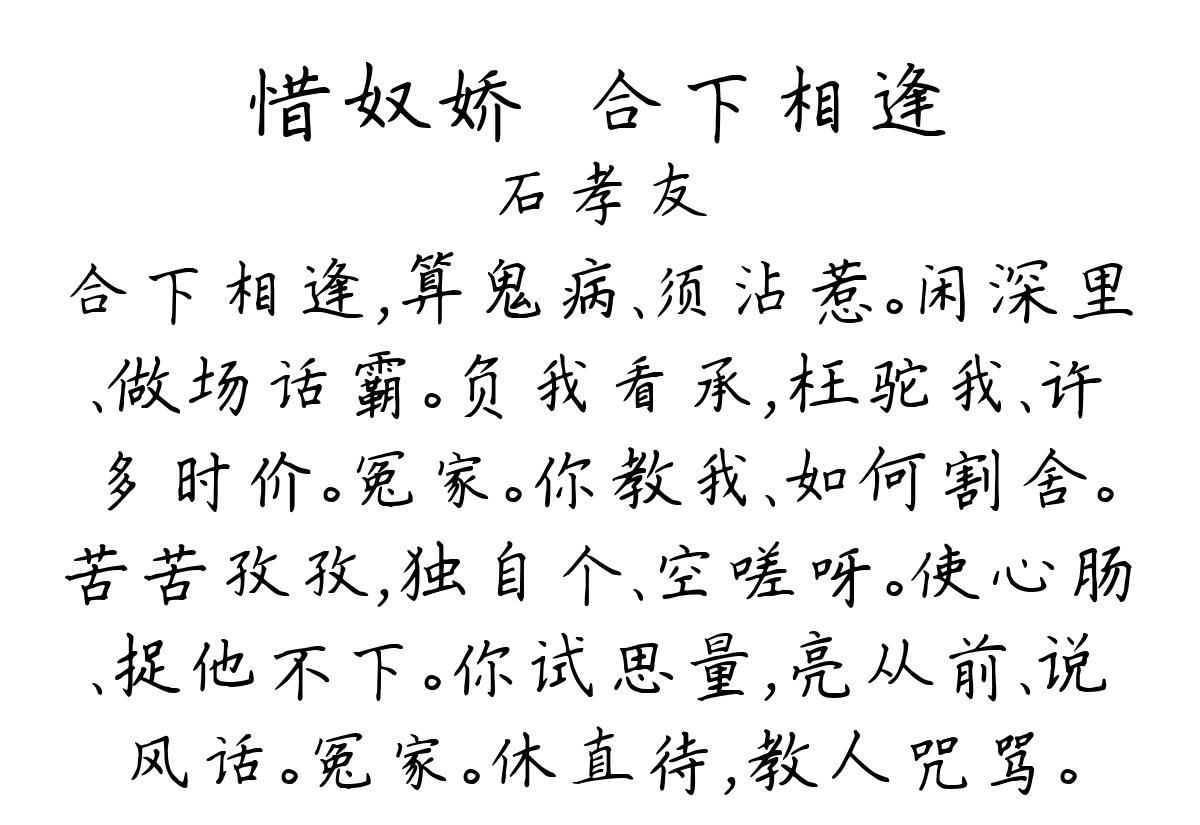 惜奴娇 合下相逢
石孝友
合下相逢,算鬼病、须沾惹。闲深里
、做场话霸。负我看承,枉驼我、许
多时价。冤家。你教我、如何割舍。
苦苦孜孜,独自个、空嗟呀。使心肠
、捉他不下。你试思量,亮从前、说
风话。冤家。休直待,教人咒骂。